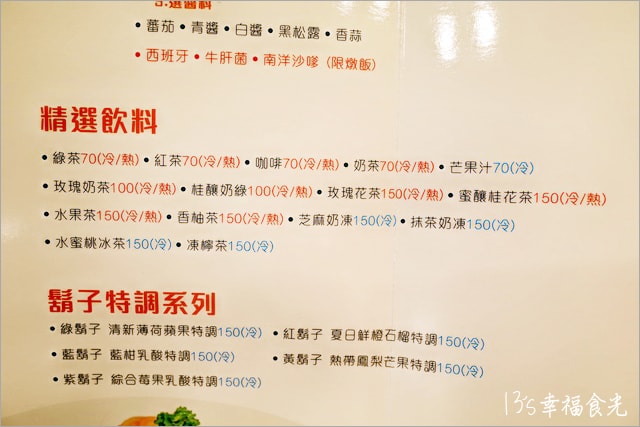 3.選醬料
•蕃茄•青醬•白醬•黑松露•香蒜
•西班牙•牛肝菌•南洋沙嗲(限燉飯)
精選飲料
•綠茶70(冷/熱)•紅茶70(冷/熱)•咖啡70(冷/熱)•奶茶70(冷/熱)•芒果汁70(冷)
•玫瑰奶茶100(冷/熱)•桂釀奶綠100(冷/熱)•玫瑰花茶150(冷/熱)•蜜釀桂花茶150(冷/熱)
•水果茶150(冷/熱)•香柚茶150(冷/熱)•芝麻奶凍150(冷)•抹茶奶凍150(冷)
•水蜜桃冰茶150(冷)•凍檸茶150(冷)
鬍子特調系列
•綠鬍子 清新薄荷蘋果特調150(冷)•紅鬍子 夏日鮮橙石榴特調150(冷)
•藍鬍子 藍柑乳酸特調150(冷)•黃鬍子 熱帶鳳梨芒果特調150(冷)
•紫鬍子 綜合莓果乳酸特調150(冷)
13's幸福食光